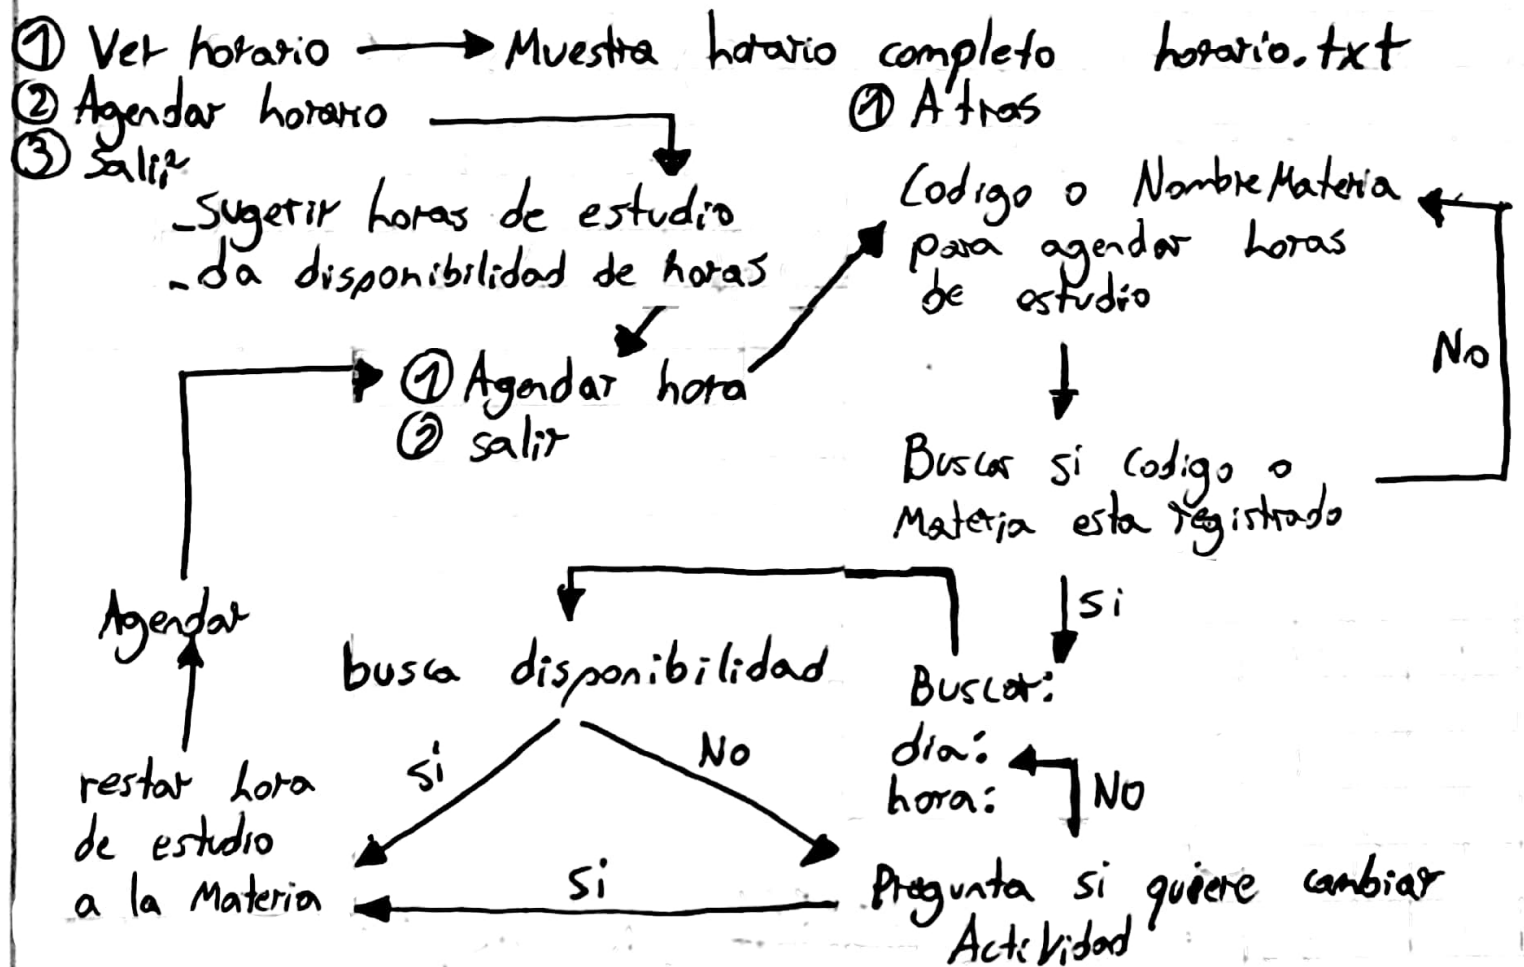 ① Ver horario → Muestra horario completo horario.txt
② Agendar horario
① Atras
③ Salir
- Sugerir horas de estudio
- da disponibilidad de horas
Codigo o Nombre Materia
para agendar horas
de estudio
① Agendar hora
② salir
No
Buscar si Codigo o
Materia esta registrado
Si
Agendar
busca disponibilidad
Buscar:
dia:
hora:
Si
No
NO
restar hora
de estudio
a la Materia
Si
Pregunta si quiere cambiar
Actividad